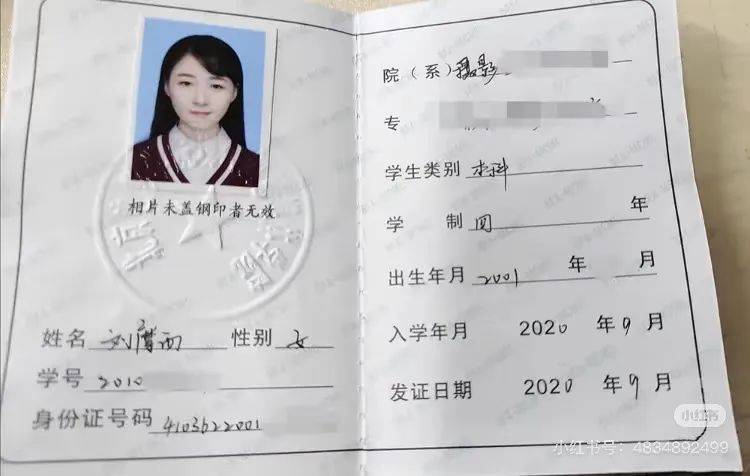 相片未盖钢印者无效
姓名 刘 性别 女
学号 2010
身份证号码 4103622001
院（系）摄影
专
学生类别 本科
学 制 四 年
出生年月 2001 年 月
入学年月 2020 年 9 月
发证日期 2020 年 9 月
小红书
小红书号：4834892499